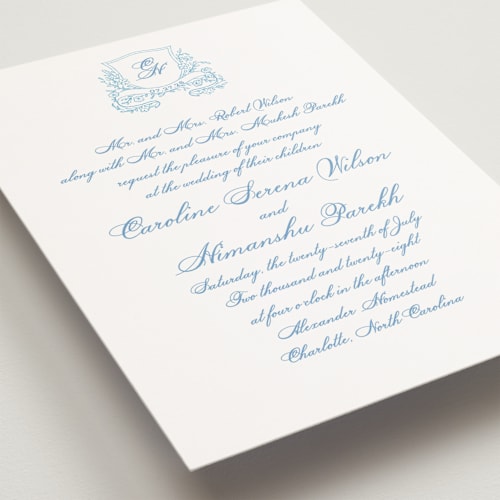 CH
Mr. and Mrs. Robert Wilson
along with Mr. and Mrs. Mukesh Parekh
request the pleasure of your company
at the wedding of their children
Caroline Serena Wilson
and
Himanshu Parekh
Saturday, the twenty-seventh of July
Two thousand and twenty-eight
at four o'clock in the afternoon
Alexander Homestead
Charlotte, North Carolina